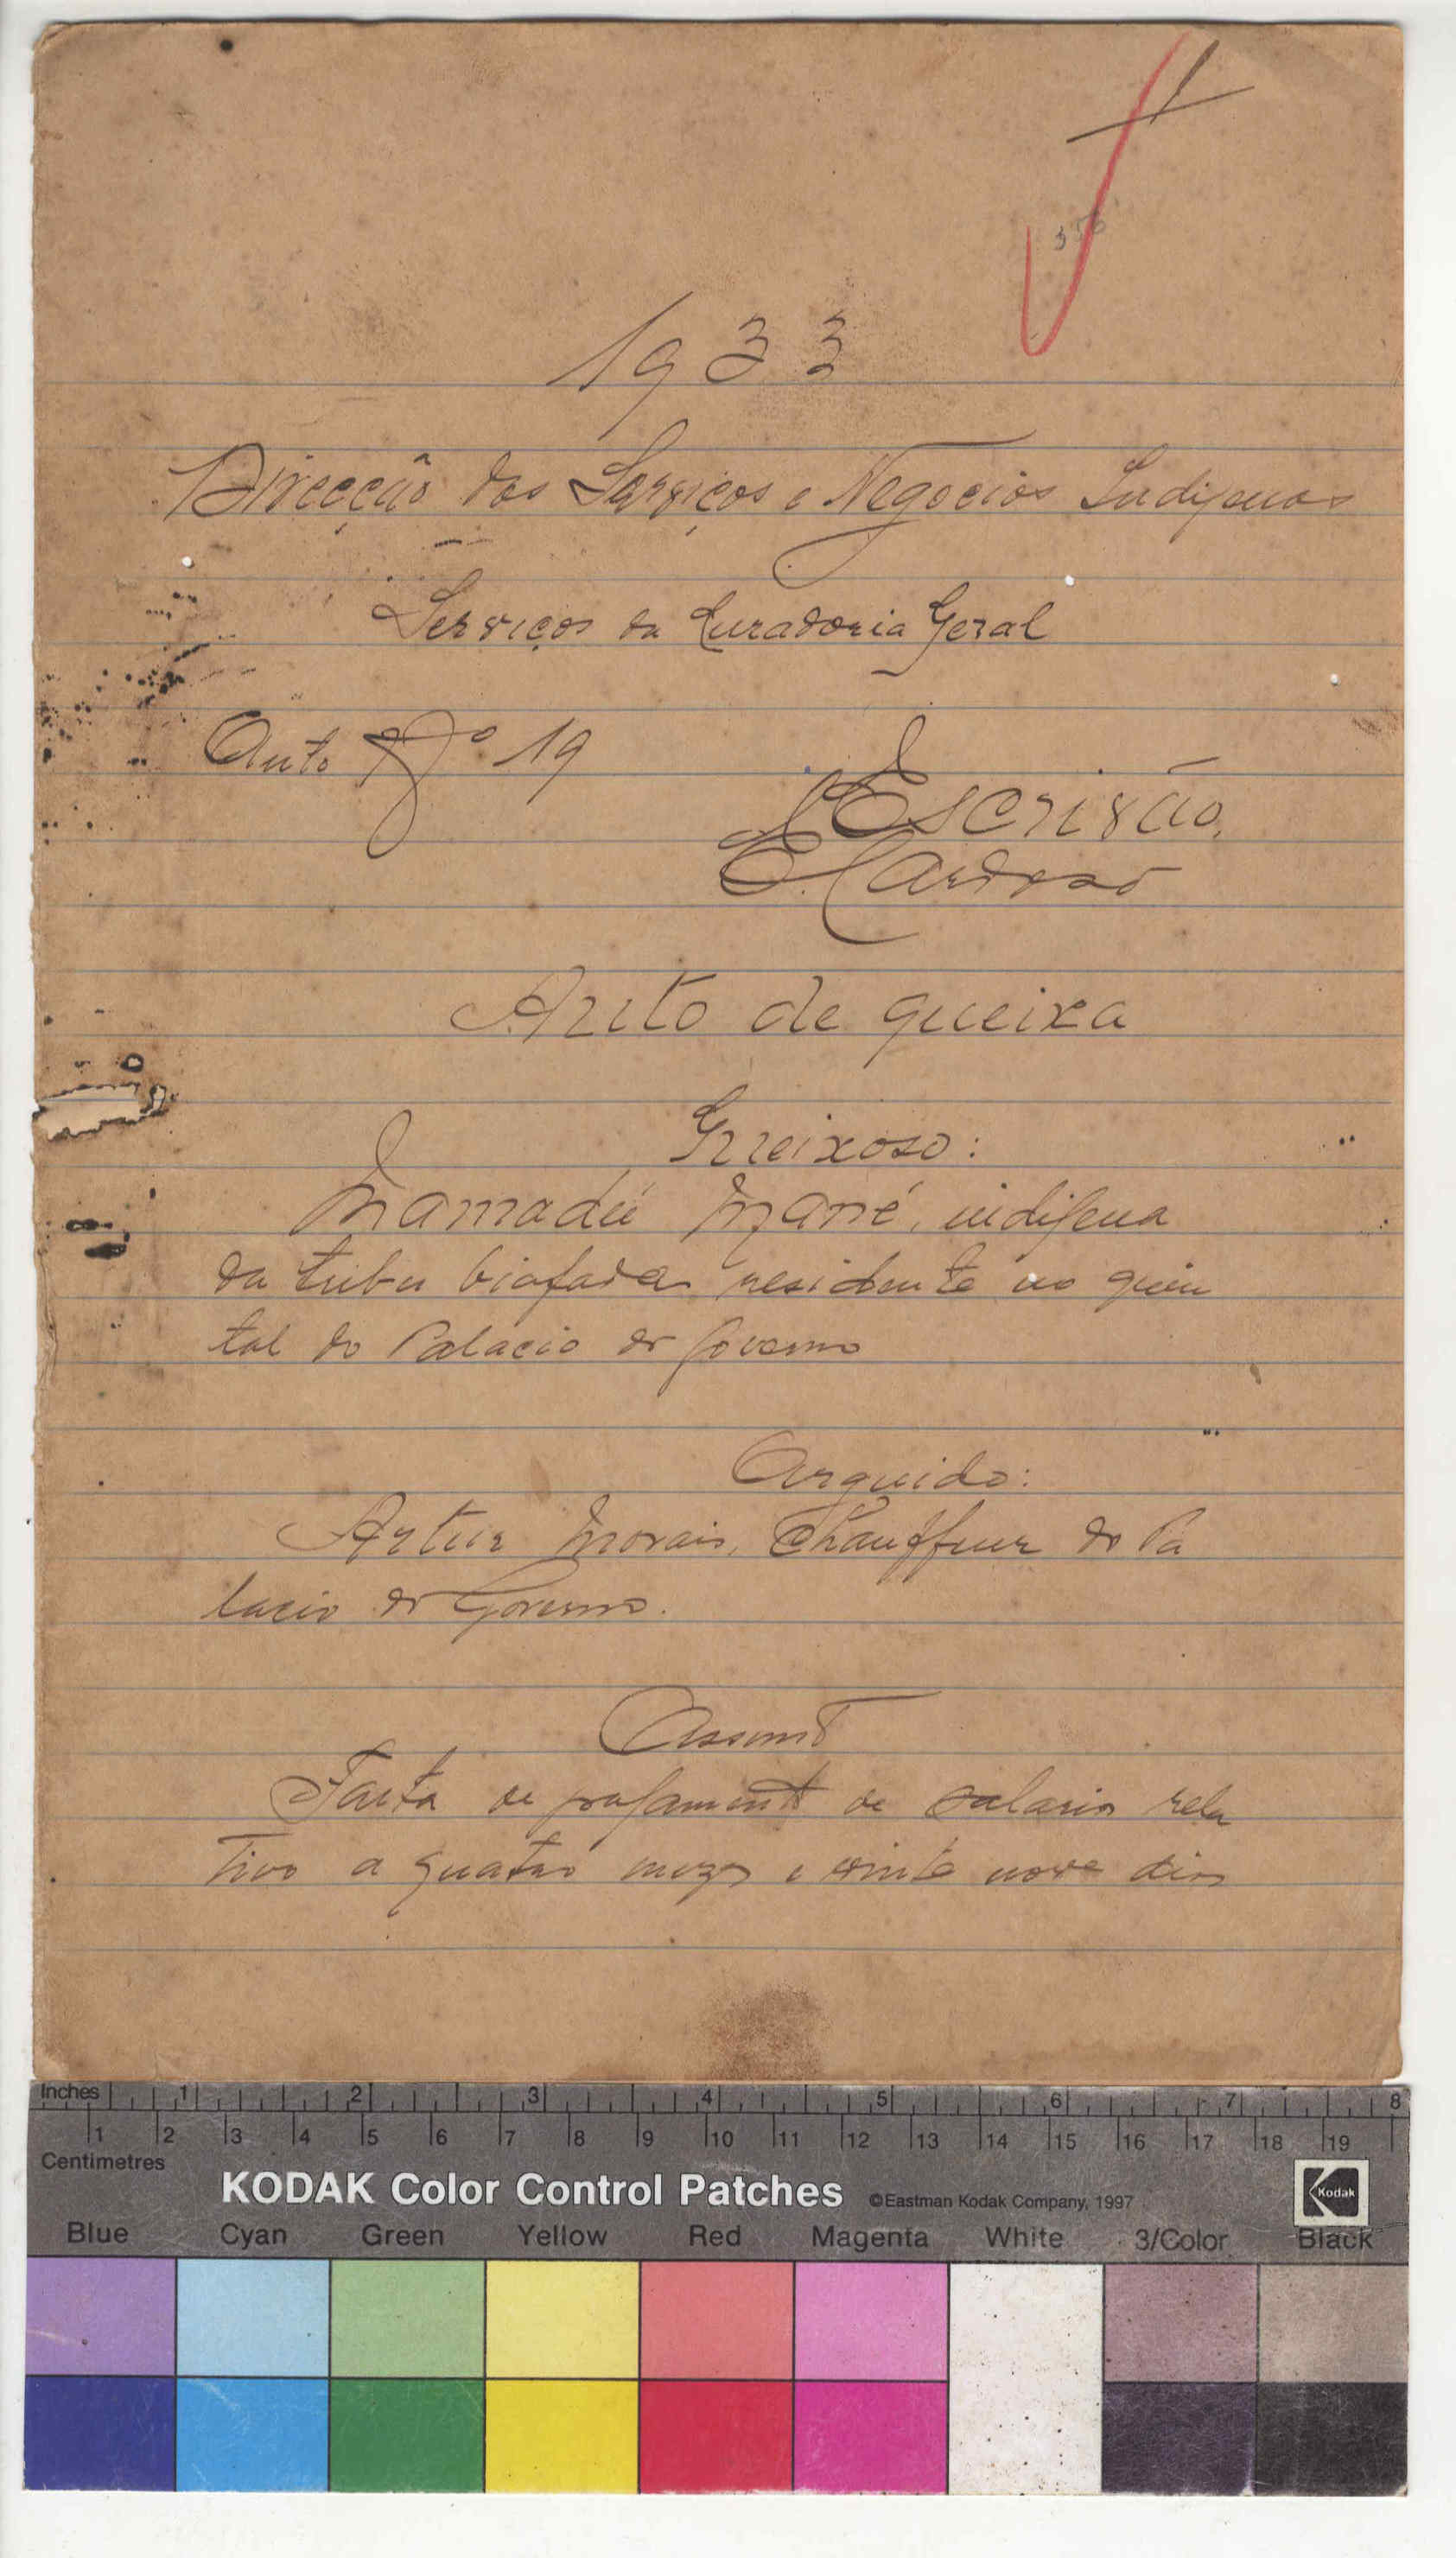 356
1933
Direcção dos Serviços e Negocios Indigenas
Serviços da Curadoria Geral
Auto Nº 19
O Escrivão,
E. Cardoso
Auto de queixa
Queixoso:
Mamadú Mané, indigena
da tribu biafada residente no quin
tal do Palacio do Governo
Arguido:
Artur Morais, Chauffeur do Pa
lacio do Governo.
Assunto
Falta de pagamento de salario rela
tivo a quatro mezes e vinte nove dias
Inches 1 2 3 4 5 6 7 8
1 2 3 4 5 6 7 8 9 10 11 12 13 14 15 16 17 18 19
Centimetres
KODAK Color Control Patches ©Eastman Kodak Company, 1997 Kodak
Blue Cyan Green Yellow Red Magenta White 3/Color Black